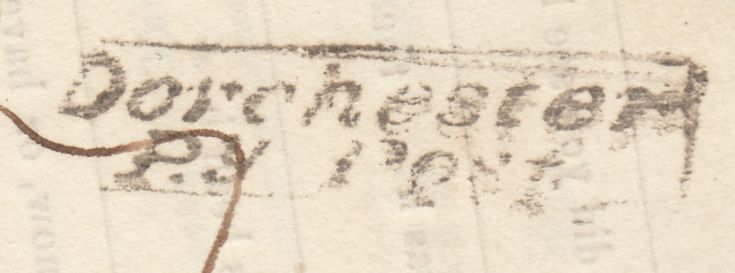 Dorchester
P.Y Post